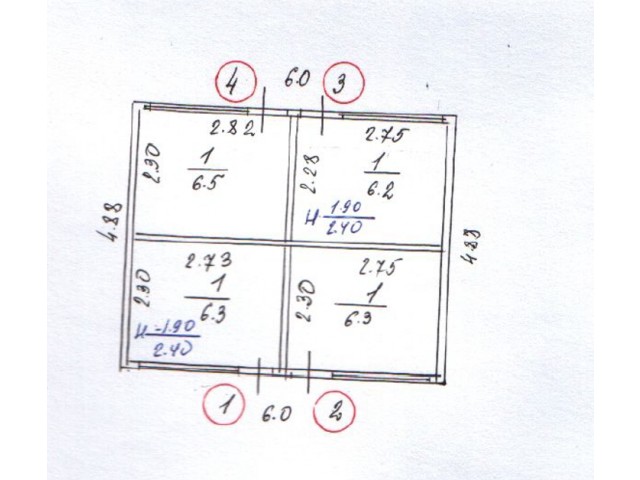 4 6.0 3
2.82 2.75
2.30 1 2.28 1
6.5 6.2
H 1.90
2.40
4.88 4.83
2.73 2.75
2.30 1 2.30 1
6.3 6.3
H-1.90
2.40
1 6.0 2